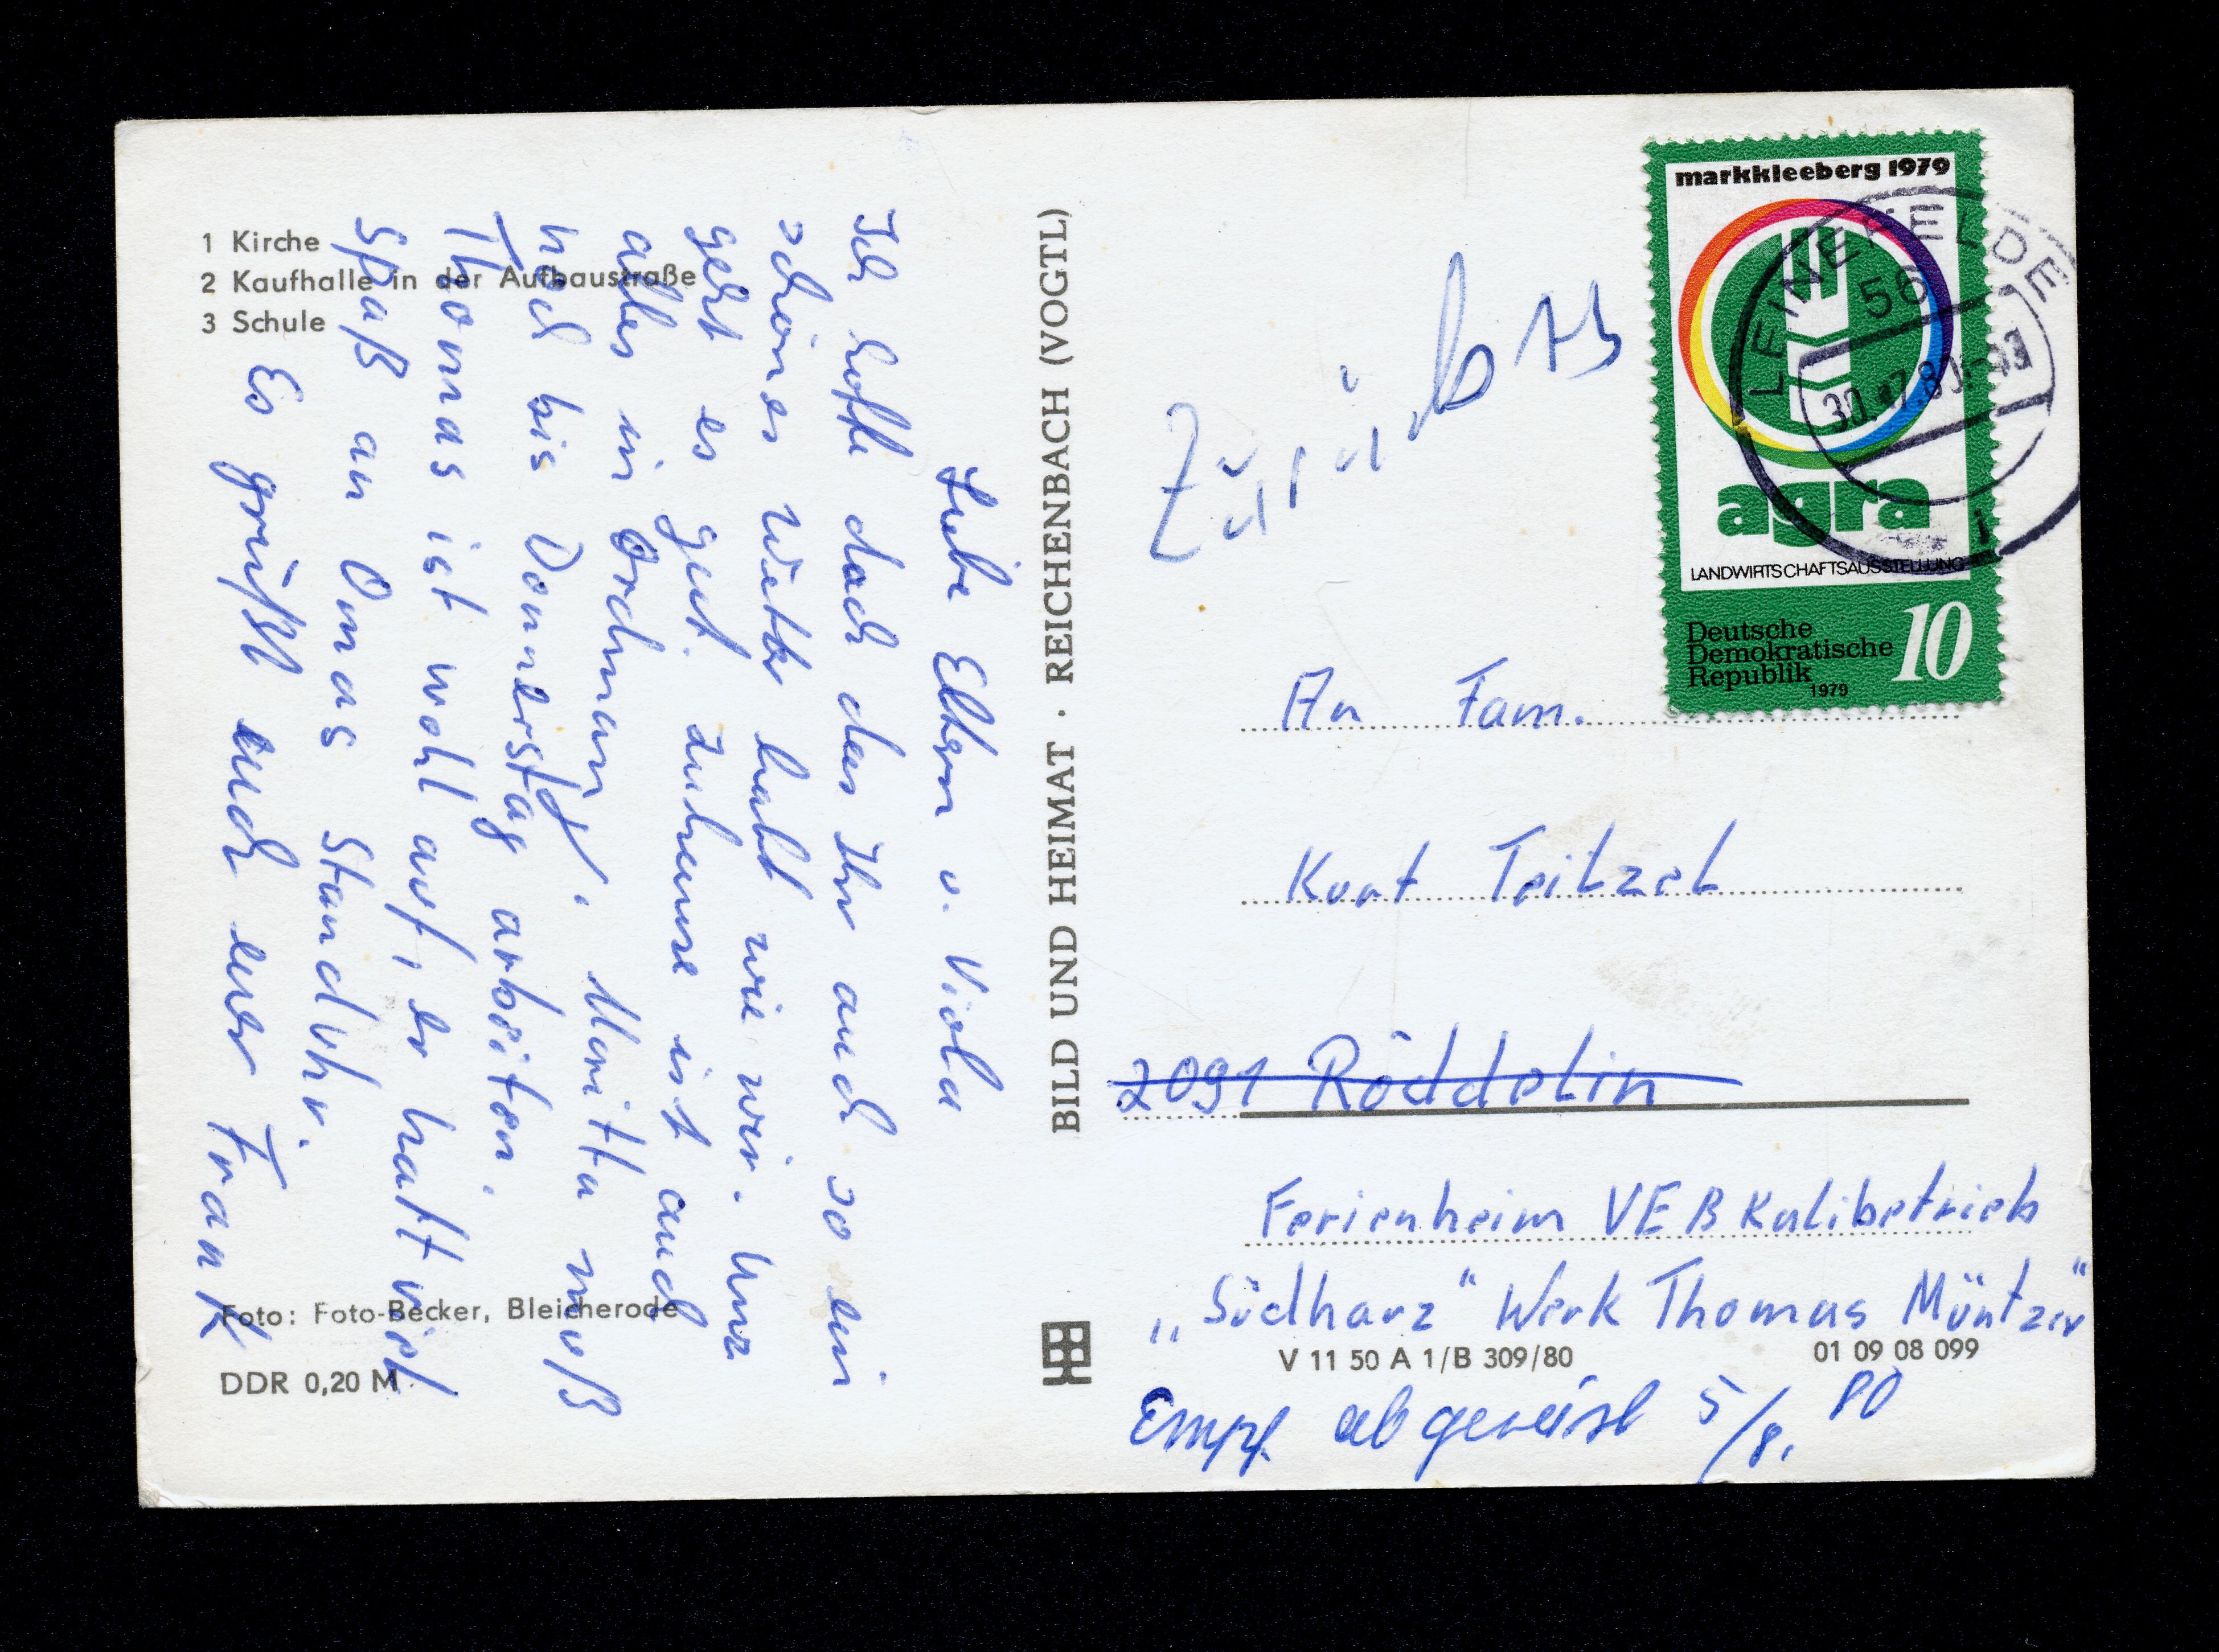 1 Kirche
2 Kaufhalle in der Aufbaustraße
3 Schule
Liebe Eltern u. Viola
Ich hoffe doch das Ihr auch so ein
schönes Wetter habt wie wir. Uns
geht es gut. Zuhause ist auch
alles in Ordnung. Maritta muß
noch bis Donnerstag arbeiten.
Thomas ist wohl auf, er hatt viel
Spaß an Omas Standuhr.
Es grüßt euch euer Frank
Foto: Foto-Becker, Bleicherode
DDR 0,20 M
BILD UND HEIMAT · REICHENBACH (VOGTL)
Zurück
markkleeberg 1979
agra
LANDWIRTSCHAFTSAUSSTELLUNG
Deutsche
Demokratische
Republik
1979
10
LEINEFELDE
56
30.-7.80
1
An Fam.
Kurt Teitzel
2091 Röddelin
Ferienheim VEB Kalibetrieb
„Südharz" Werk Thomas Müntzer"
V 11 50 A 1/B 309/80
01 09 08 099
Empf. abgereist 5/8. 80